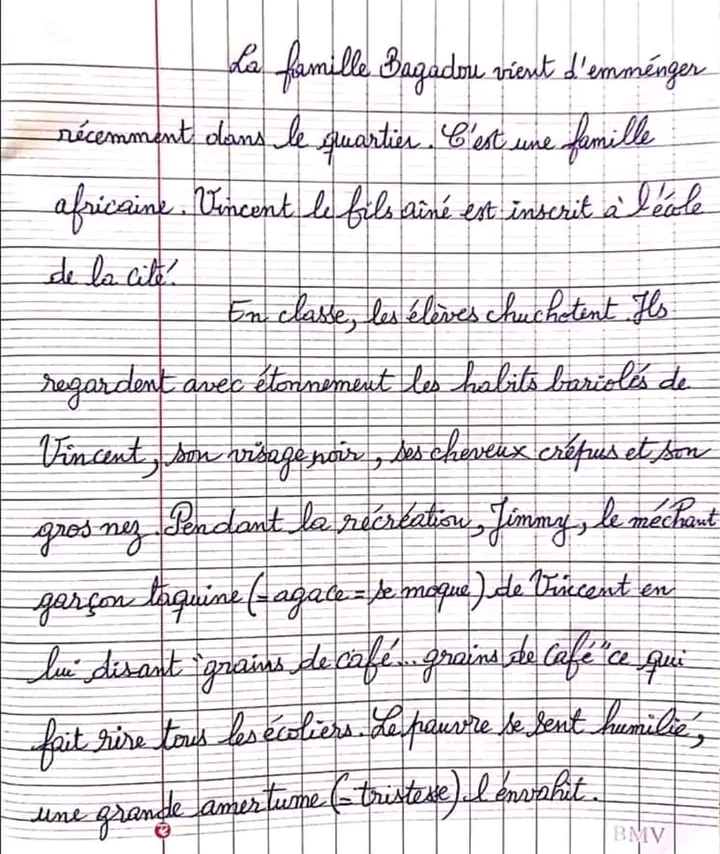 La famille Bagadou vient d'emménger
récemment dans le quartier. C'est une famille
africaine. Vincent le fils aîné est inscrit à l'école
de la cité.
En classe, les élèves chuchotent. Ils
regardent avec étonnement les habits bariolés de
Vincent, son visage noir, ses cheveux crépus et son
gros nez. Pendant la récréation, Jimmy, le méchant
garçon taquine (= agace = se moque) de Vincent en
lui disant "grains de café... grains de café" ce qui
fait rire tous les écoliers. Le pauvre se sent humilié,
une grande amertume (= tristesse) l'énvahit.
BMV